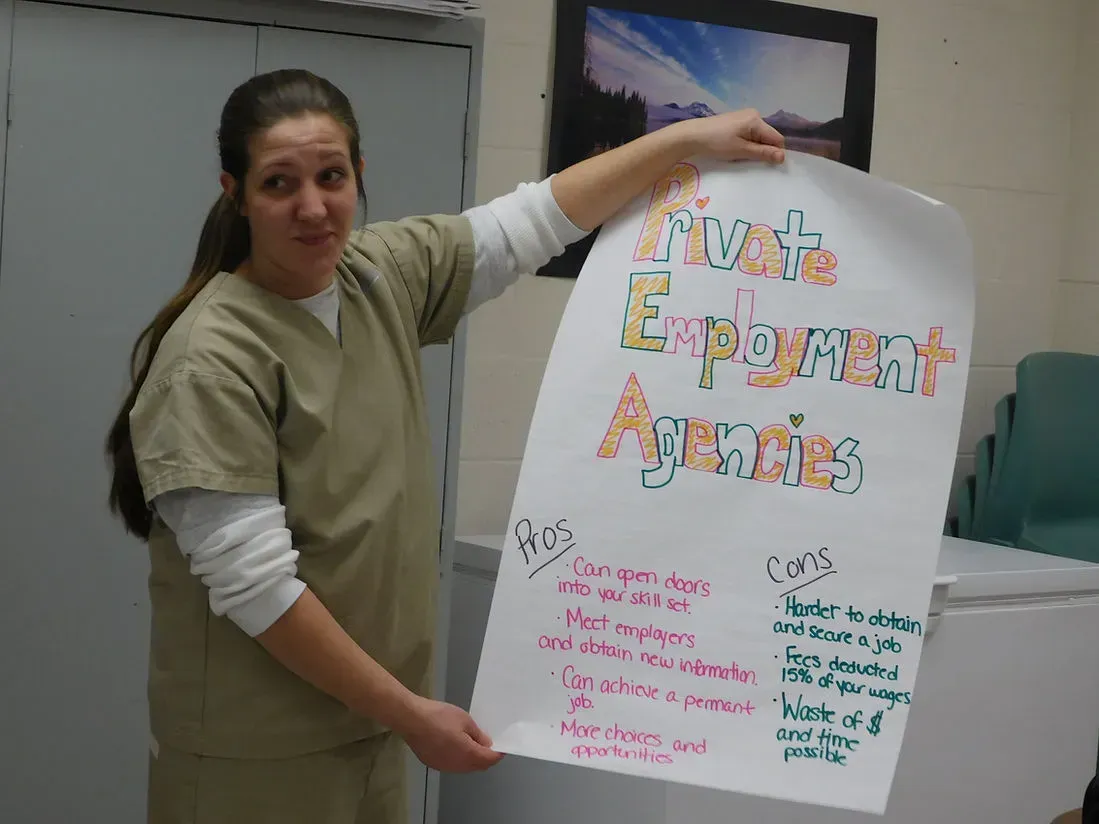 Private
Employment
Agencies
Pros
· Can open doors
into your skill set.
· Meet employers
and obtain new information.
· Can achieve a permant
job.
· More choices and
opportunities
Cons
· Harder to obtain
and secure a job
· Fees deducted
15% of your wages
· Waste of $
and time
possible